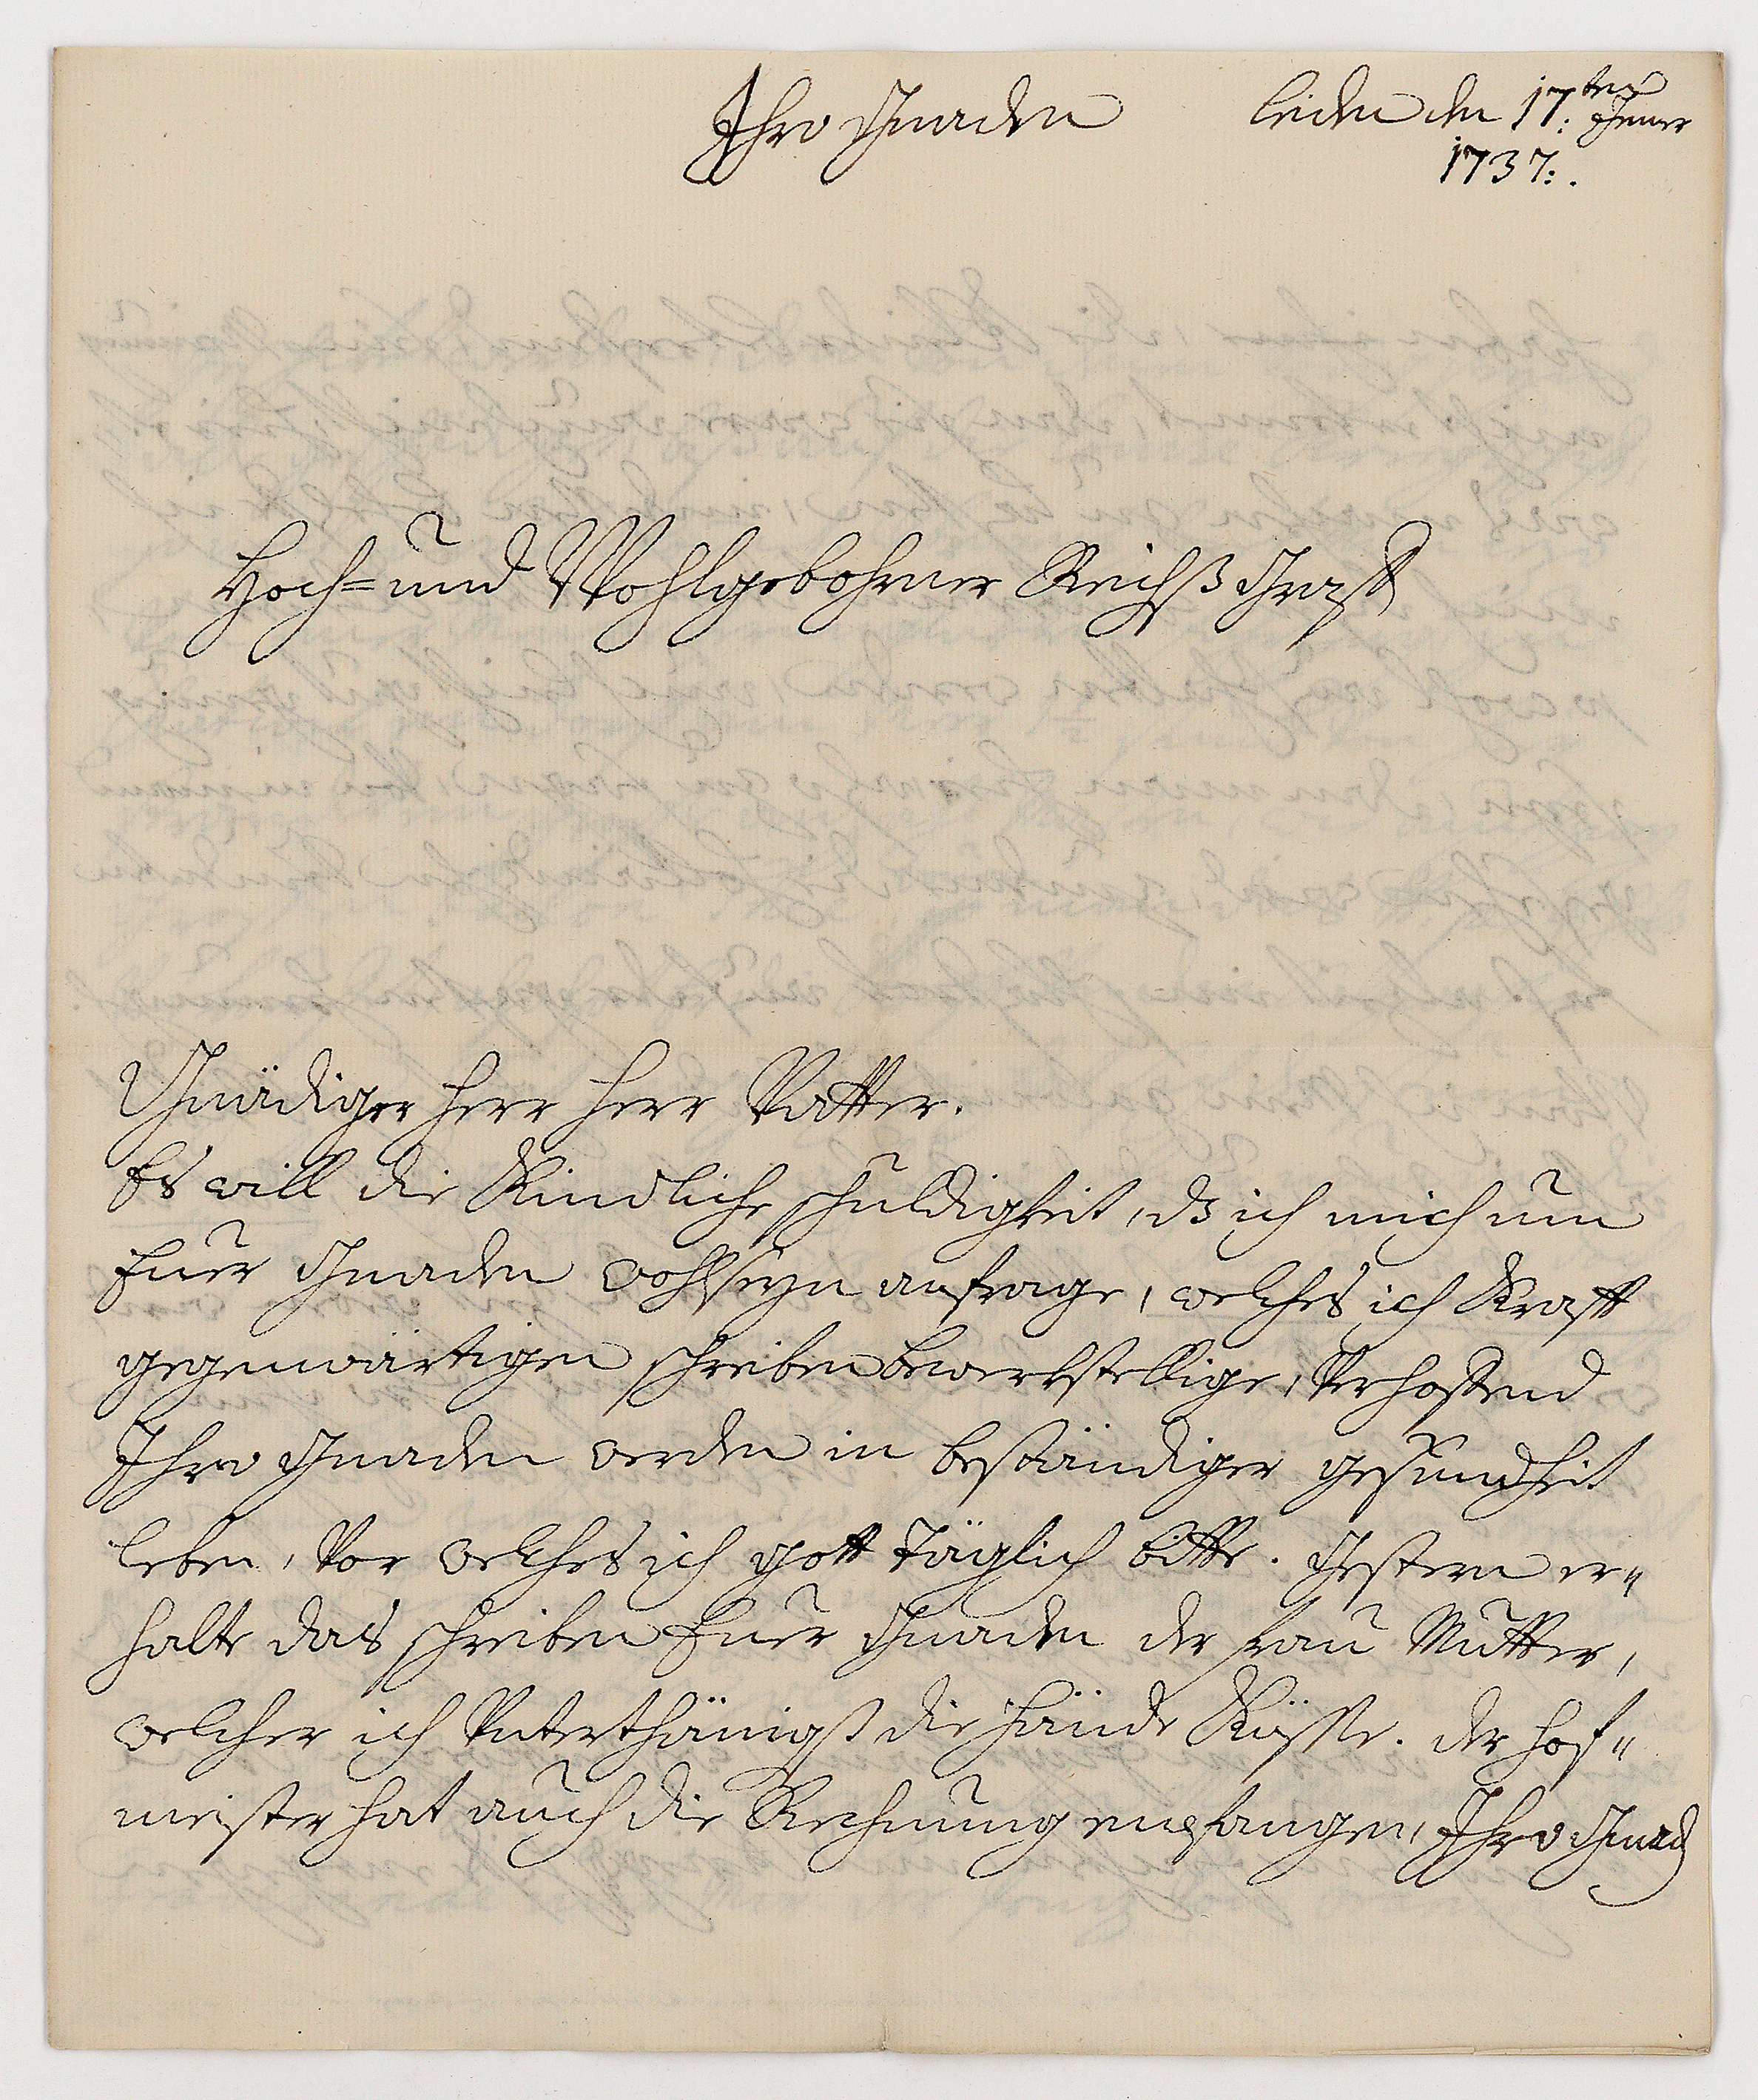 Ihro Gnaden
leiden den 17:ten Jenner
1737:.
Hoch= und Wohlgebohrner Reichß Graff
Gnädiger herr herr Vatter.
Es will die Kindliche schuldigkeit, dß ich mich um
Euer Gnaden wohlseyn anfrage, welches ich Krafft
gegenwärtigen schreiben bewerkstellige, Verhoffend
Ihro Gnaden werden in beständiger gesundheit
leben, Vor welches ich gott täglich bitte. Gestern er"
halte das schreiben Euer Gnaden der frau Mutter,
welcher ich Unterthänigst die hände Küsse. der hof"
meister hat auch die Rechnung empfangen, Ihro Gnad